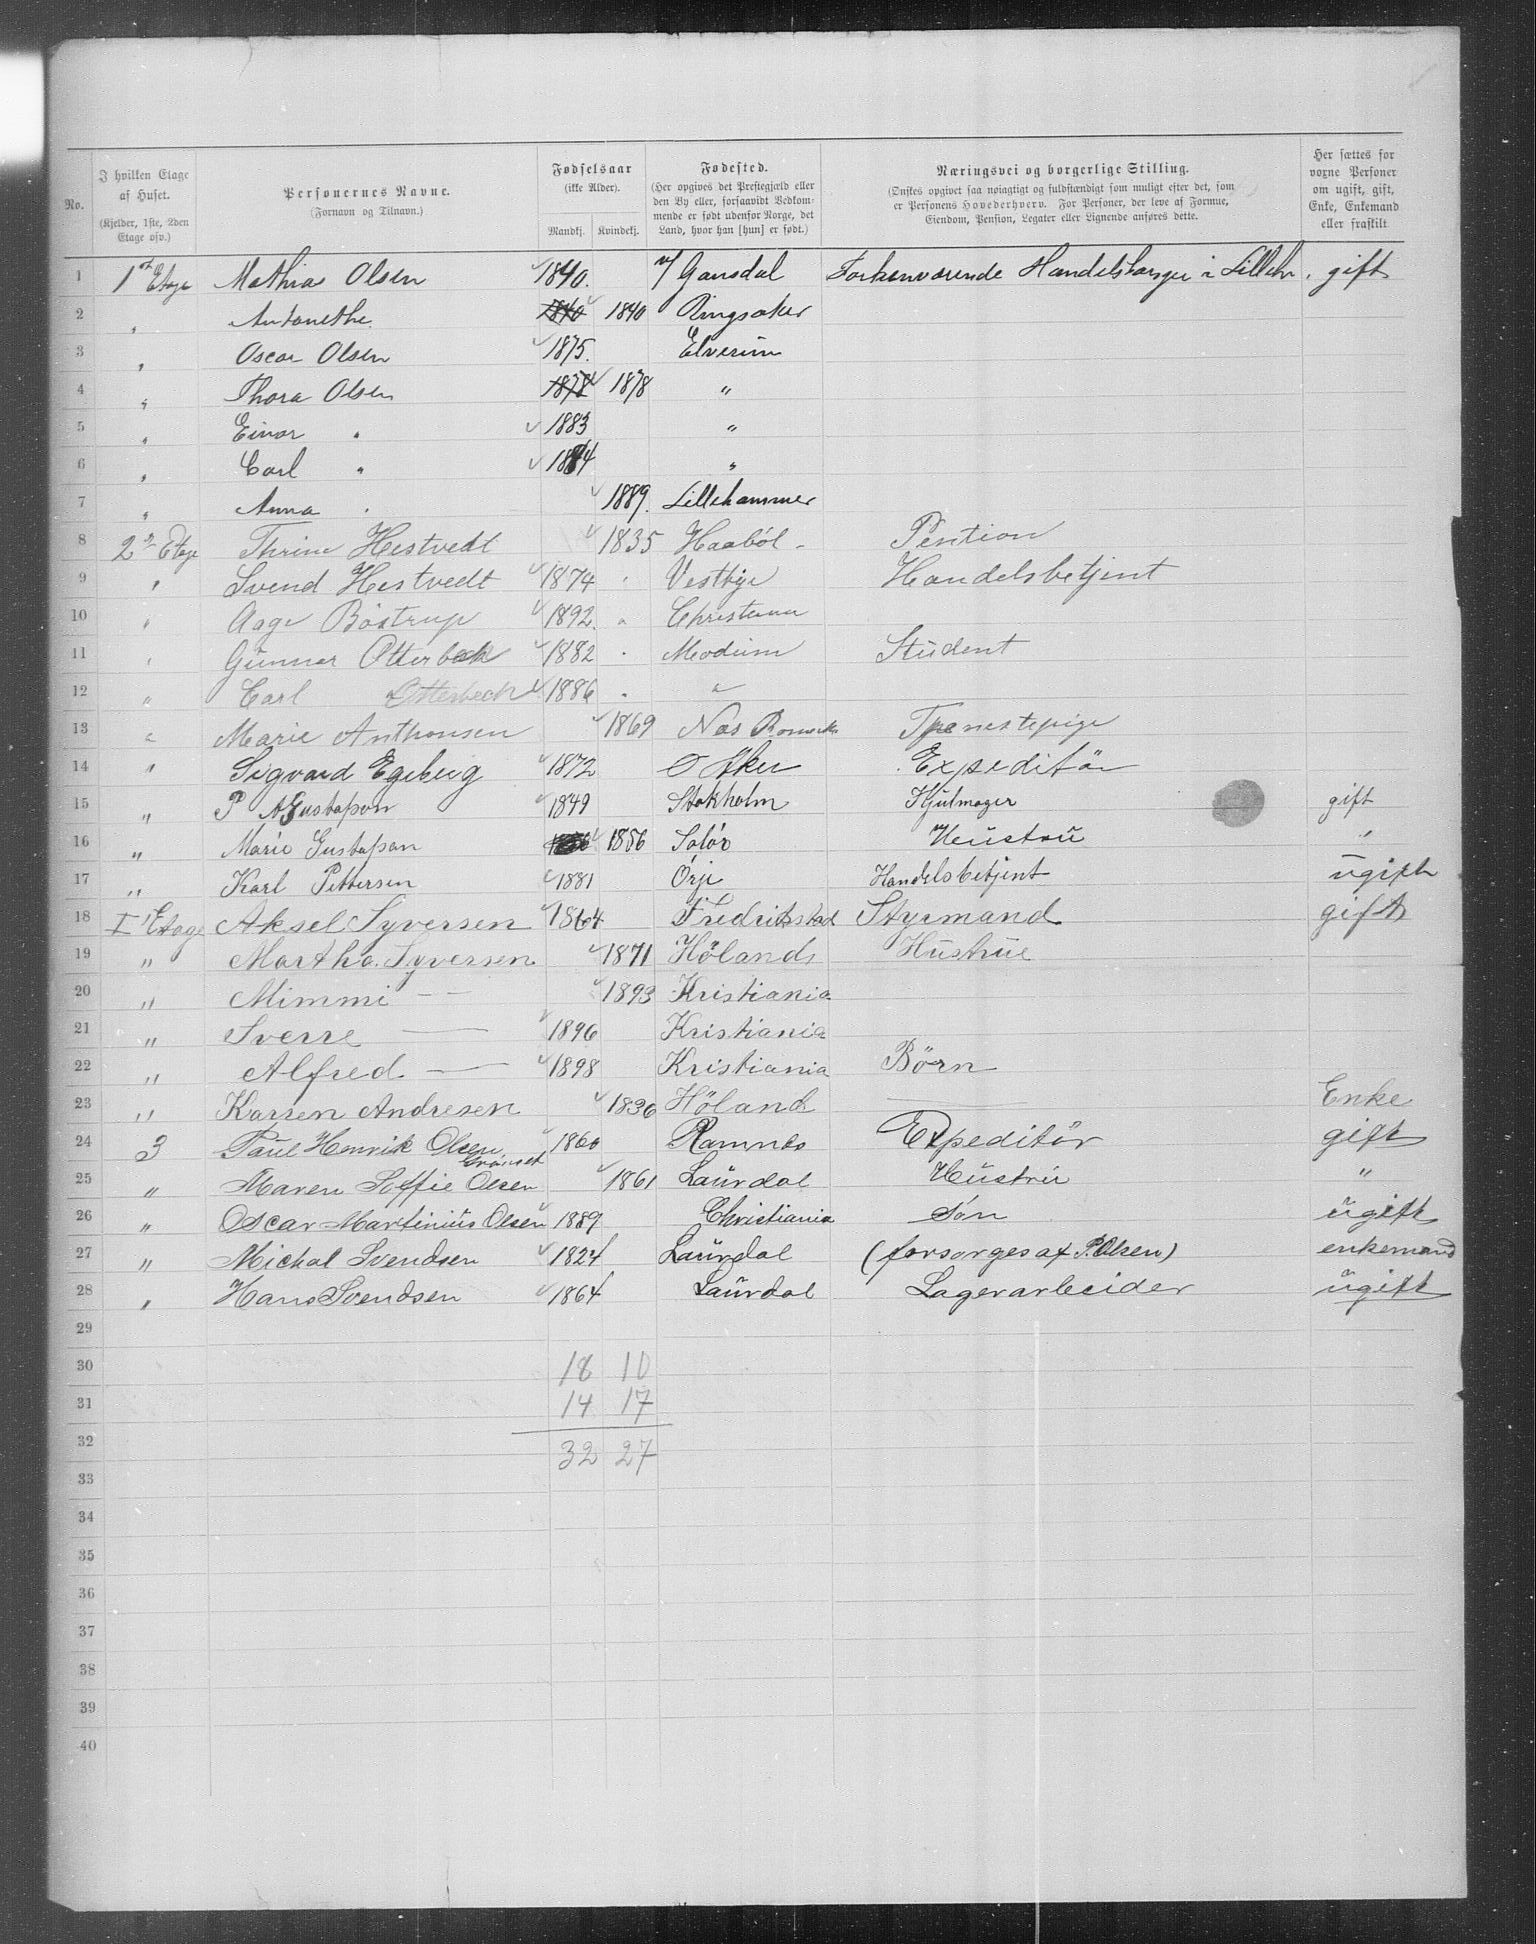 No.
I hvilken Etage af Huset. (Kjelder, 1ste, 2den Etage osv.)
Personernes Navne. (Fornavn og Tilnavn.)
Fødselsaar (ikke Alder). Mandkj. Kvindekj.
Fødested. (Her opgives det Prestegjæld eller den By eller, forsaavidt Vedkommende er født udenfor Norge, det Land, hvor han [hun] er født.)
Næringsvei og borgerlige Stilling. (Ønskes opgivet saa nøiagtigt og fuldstændigt som muligt efter det, som er Personens Hovederhverv. For Personer, der leve af Formue, Eiendom, Pension, Legater eller Lignende anføres dette.
Her sættes for voxne Personer om ugift, gift, Enke, Enkemand eller fraskilt
1 1st Etage Mathias Olsen 1840. Gausdal Handelsborger i Lilleh. gift
2 " Antonethe 1840 1840 Ringsaker
3 " Oscar Olsen 1875. Elverum
4 " Thora Olsen 1878 1878 "
5 " Einar " 1883 "
6 " Carl " 1884 "
7 " Anna " 1889. Lillehammer
8 2 Etage Thrine Hestvedt 1835 Haaböl Pention
9 " Svend Hestvedt 1874 Vestbye Handelsbetjent
10 " Aage Böstrup 1892. Christiania
11 " Gunnar Otterbeck 1882 Modum Student
12 " Carl Otterbeck 1886 "
13 " Marie Anthonsen 1869 Nes Romerike Tjenestepige
14 " Sigvard Egeberg 1872 Ø Aker Expeditör
15 " P A Gustafson 1849 Stokholm Hjulmager gift
16 " Marie Gustafson 1856 Solör Heustru "
17 " Karl Pettersen 1881 Örje Handelsbetjent ugift
18 I Etage Aksel Syversen 1864 Fredrikstad Styrmand gift
19 " Martha Syversen 1871 Hölands Hustrue
20 " Mimmi — 1893 Kristiania
21 " Sverre — 1896 Kristiania
22 " Alfred — 1898 Kristiania Börn
23 " Karsen Andresen 1836 Höland — Enke
24 3 Paul Henrik Olsen 1860 Ramnes Expeditör gift
25 " Maren Soffie Olsen 1861 Laurdal Hustru "
26 " Oscar Martinius Olsen 1889 Christiania Sön ugift
27 " Michal Svendsen 1824 Laurdal (forsørges af P. Olsen) enkemand
28 " Hans Svendsen 1864 Laurdal Lagerarbeider ugift
29
30 18 10
31 14 17
32 32 27
33
34
35
36
37
38
39
40